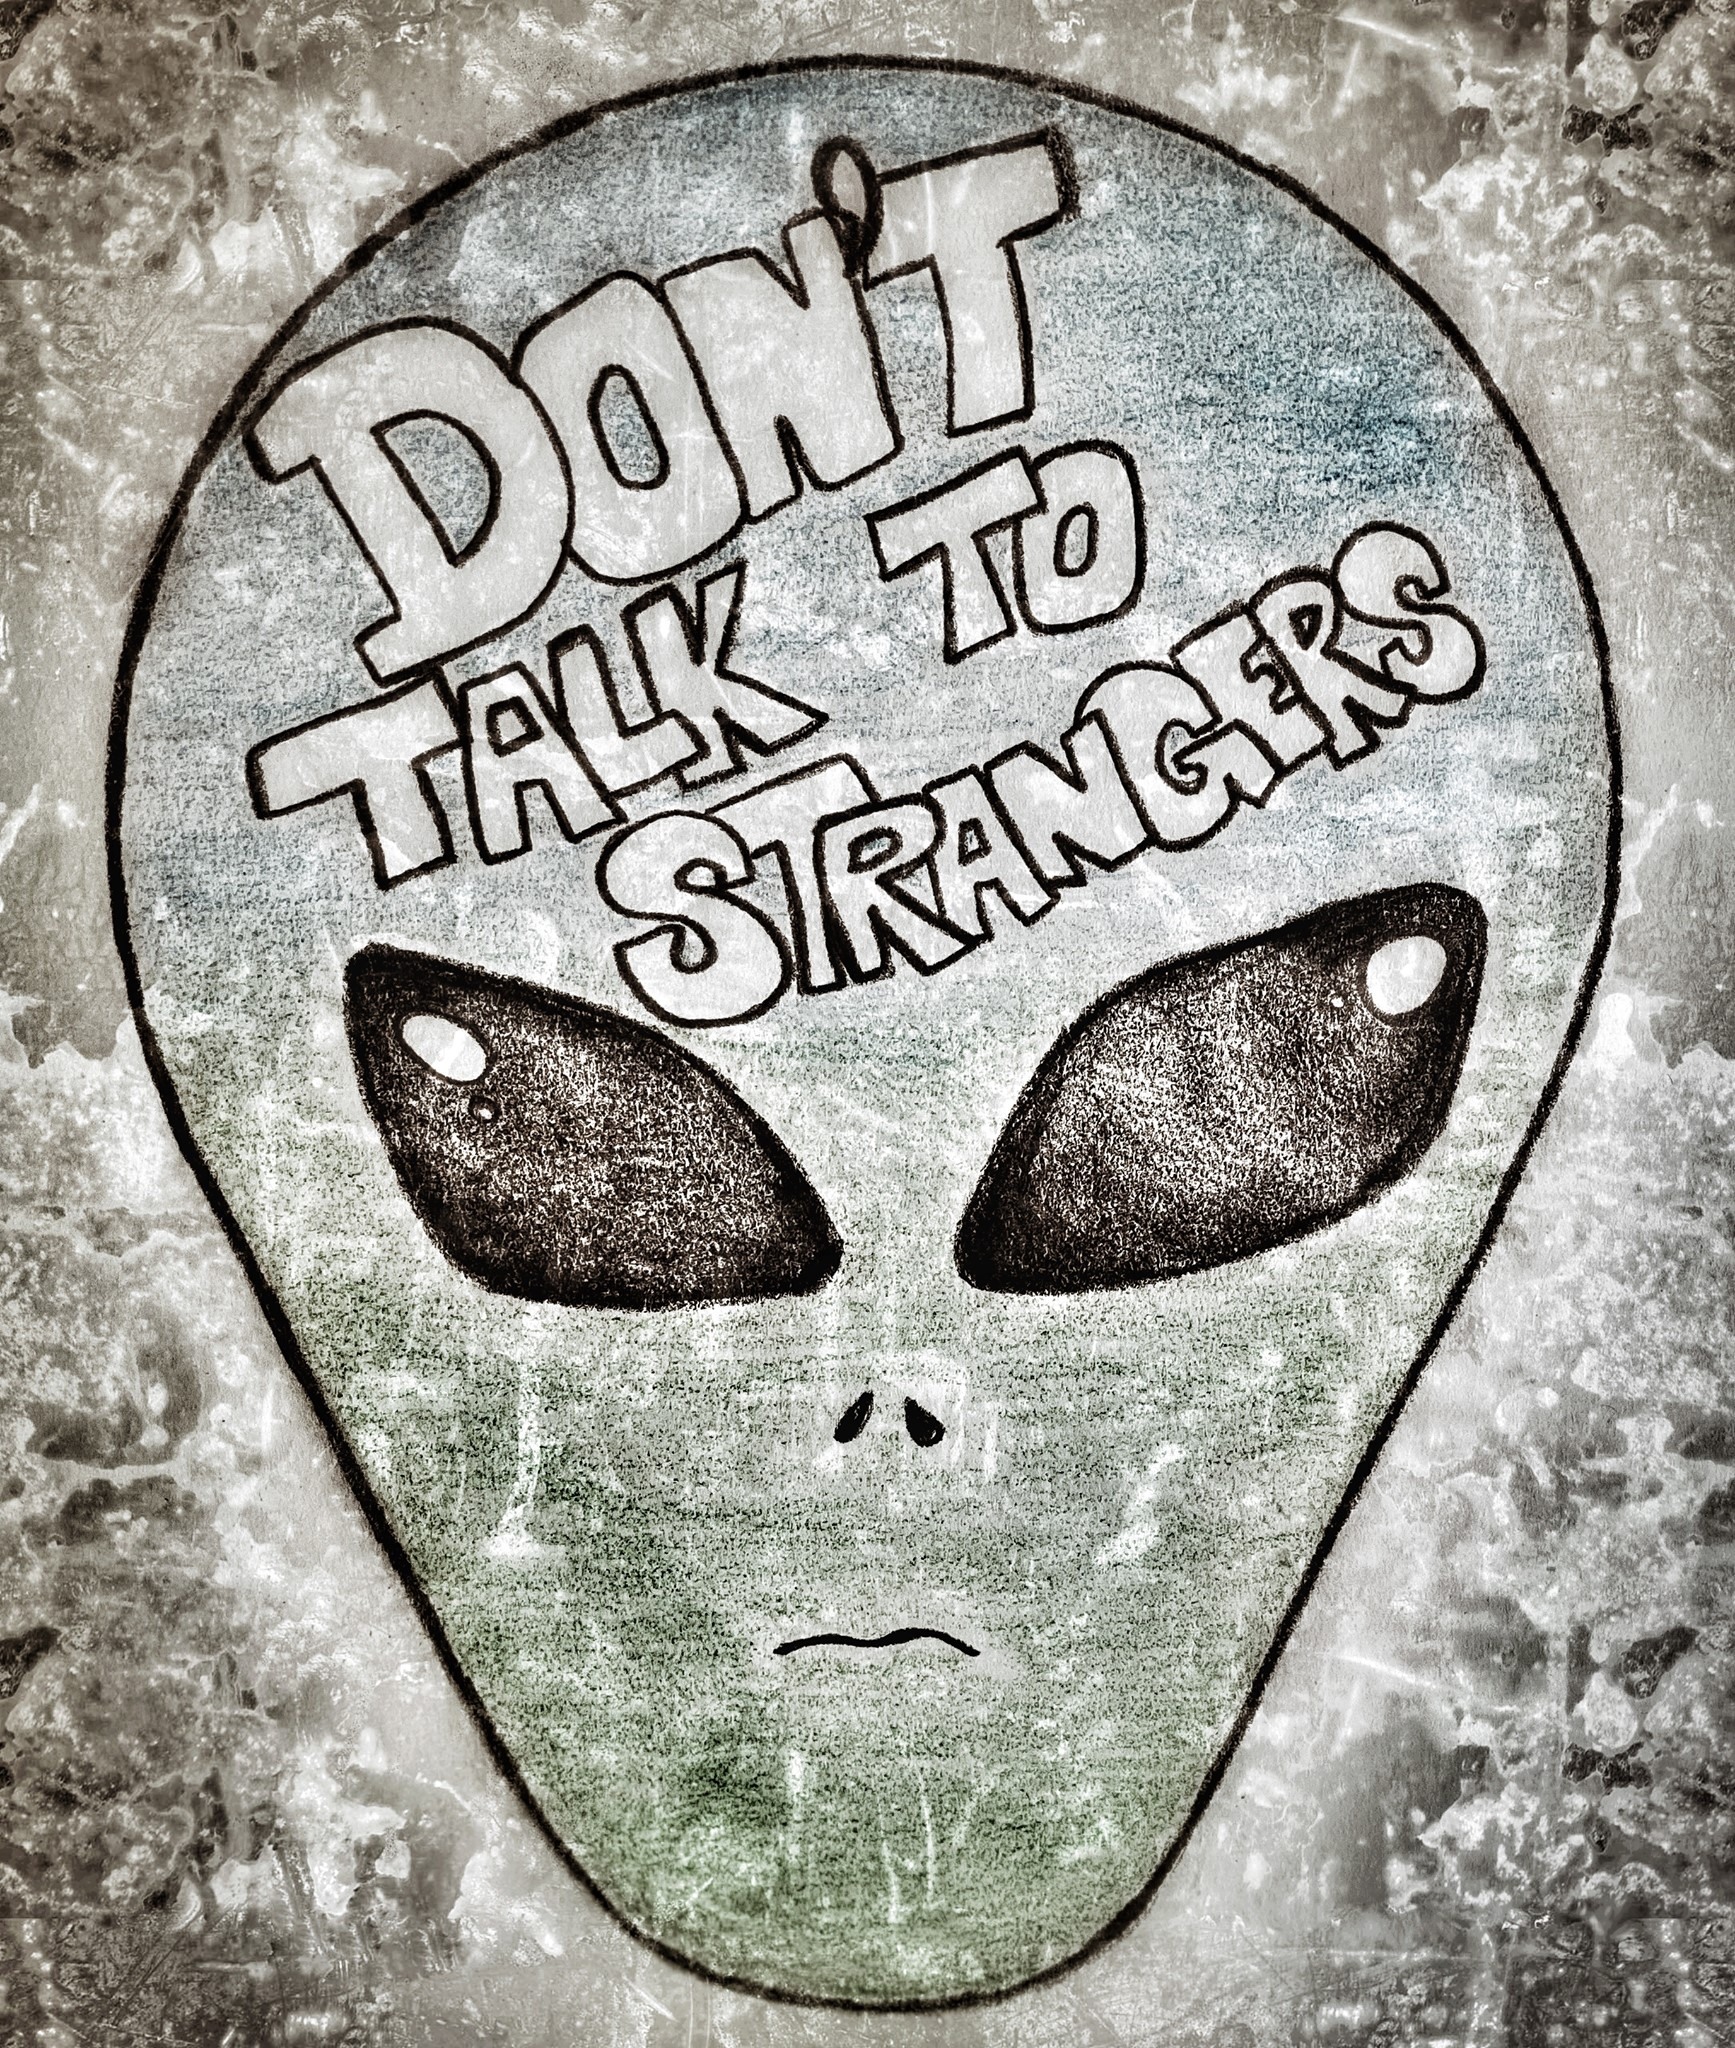 DON'T
TALK TO
STRANGERS